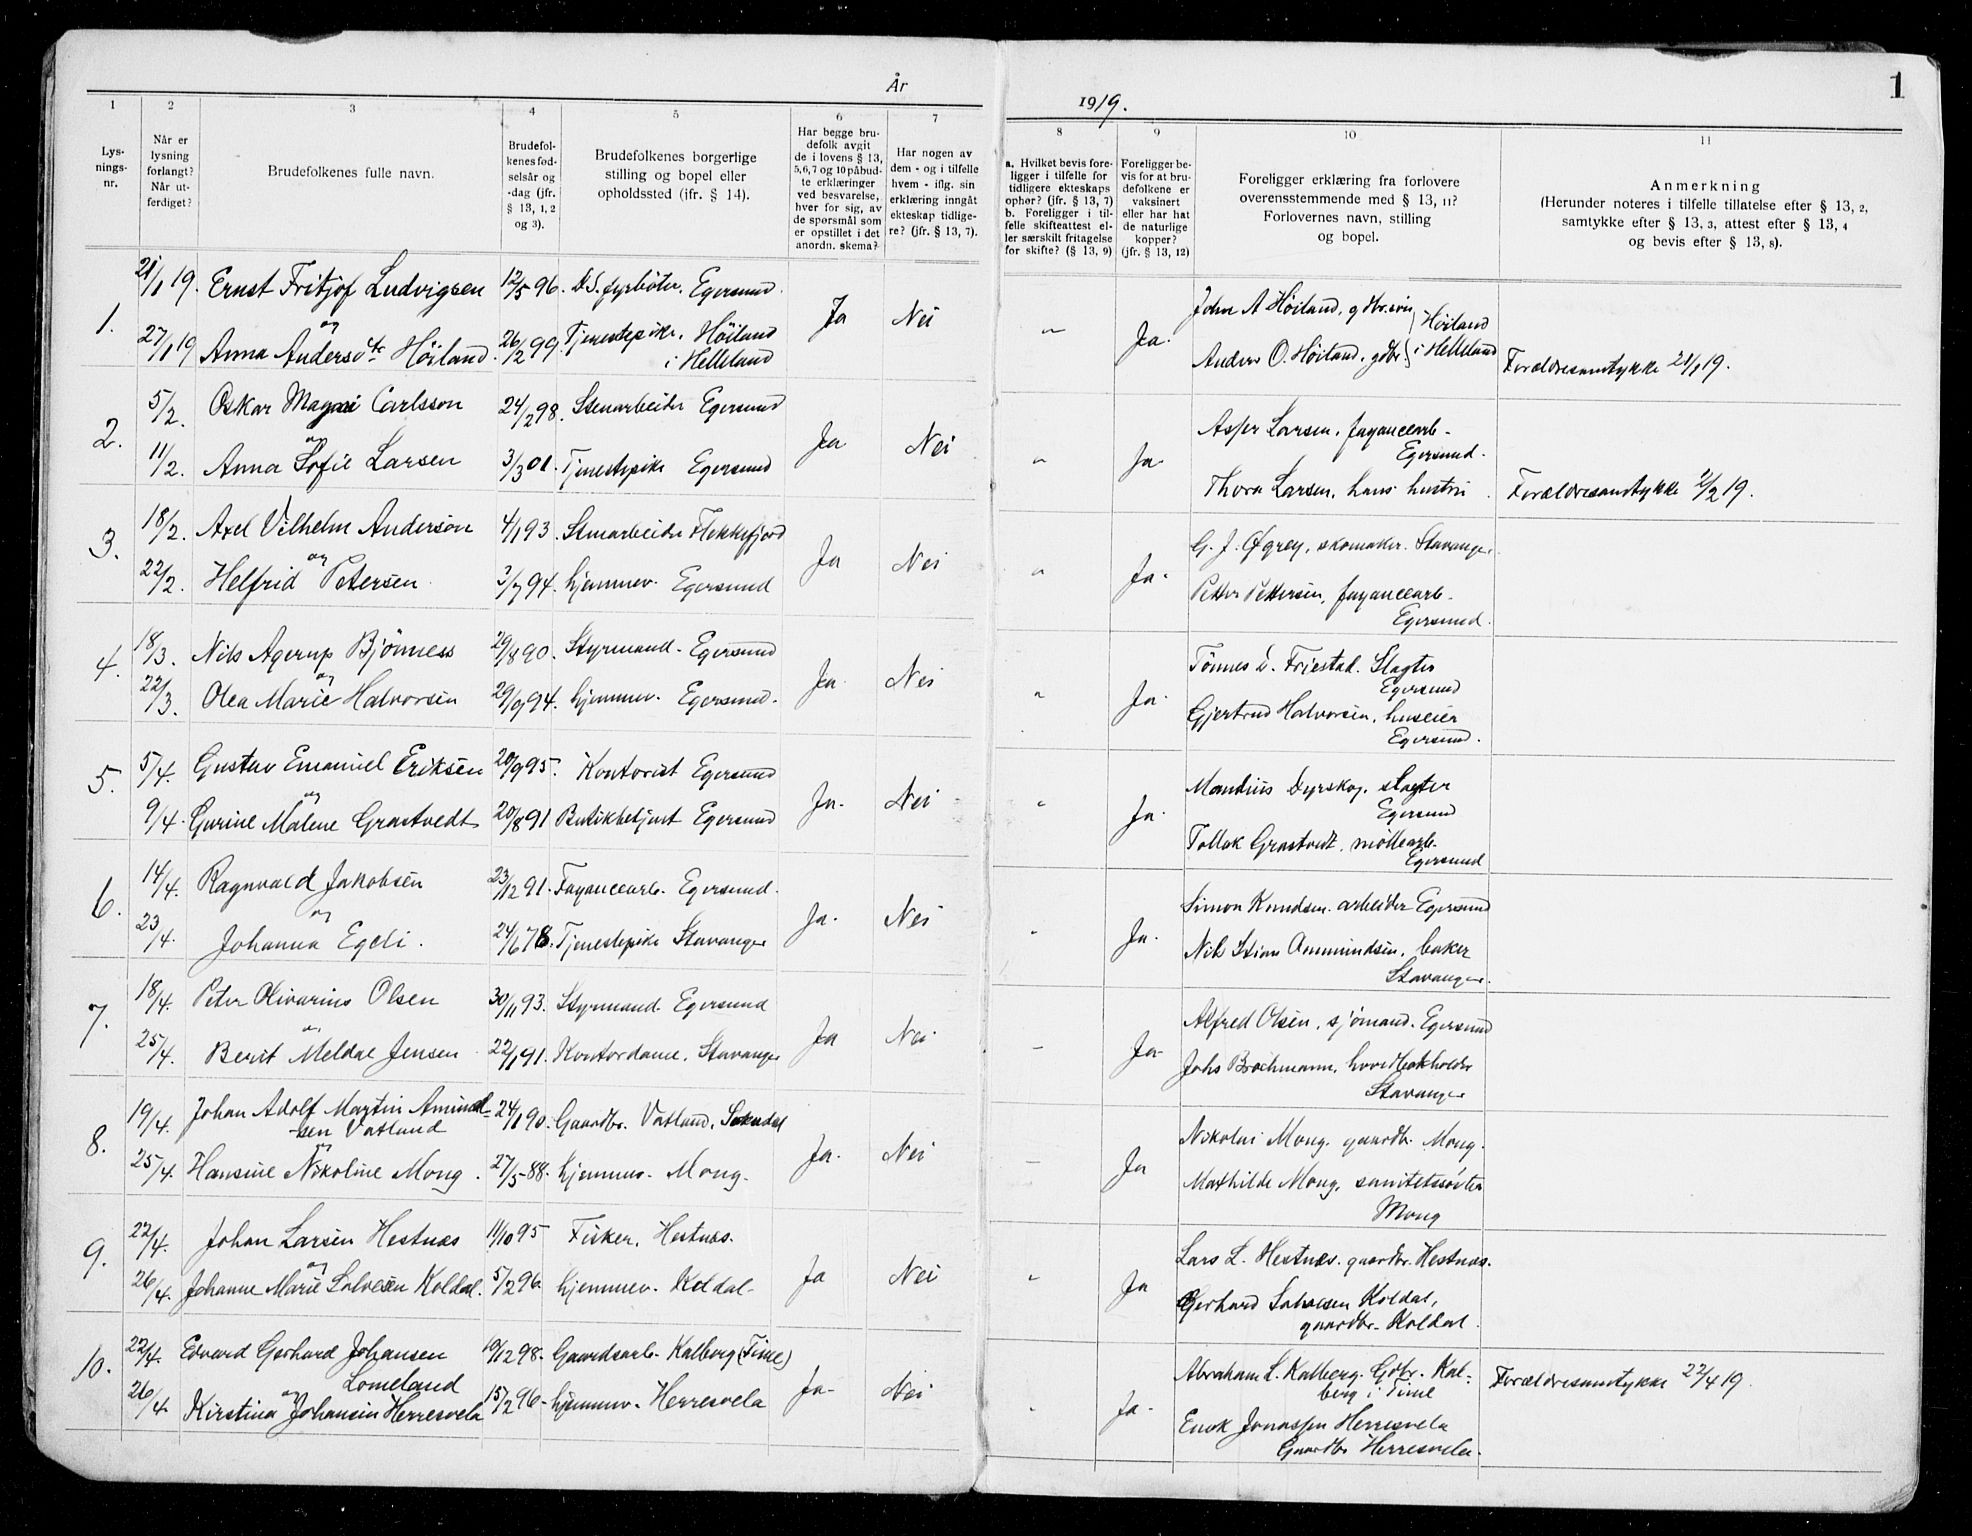 År
1919.
1
1
Lys-
nings-
nr.
2
Når er
lysning
forlangt?
Når ut-
ferdiget?
3
Brudefolkenes fulle navn.
4
Brudefol-
kenes fød-
selsår og
-dag (jfr.
§ 13, 1, 2
og 3).
5
Brudefolkenes borgerlige
stilling og bopel eller
opholdssted (jfr. § 14).
6
Har begge bru-
defolk avgit
de i lovens § 13,
5, 6, 7 og 10 påbud-
te erklæringer
ved besvarelse,
hver for sig, av
de spørsmål som
er opstillet i det
anordn. skema?
7
Har nogen av
dem - og i tilfelle
hvem - iflg. sin
erklæring inngått
ekteskap tidlige-
re? (jfr. § 13, 7).
8
a. Hvilket bevis fore-
ligger i tilfelle for
tidligere ekteskaps
ophør? (jfr. § 13, 7)
b. Foreligger i til-
felle skifteattest el-
ler særskilt fritagelse
for skifte? (§ 13, 9)
9
Foreligger be-
vis for at bru-
defolkene er
vaksinert
eller har hat
de naturlige
kopper?
(jfr. § 13, 12)
10
Foreligger erklæring fra forlovere
overensstemmende med § 13, 11?
Forlovernes navn, stilling
og bopel.
11
Anmerkning
(Herunder noteres i tilfelle tillatelse efter § 13, 2,
samtykke efter § 13, 3, attest efter § 13, 4
og bevis efter § 13, 8).
1.
21/1 19. Ernst Fritjof Ludvigsen 12/5 96. D.S. fyrbøter. Egersund.
og
27/1 19 Anna Andersdtr Höiland. 26/2 99. Tjenestepike. Höiland
i Helleland
Ja Nei " Ja.
John A Höiland, gdbr.søn } Höiland
Anders O. Höiland, gdbr. } i Helleland
Forældresamtykke 21/1 19.
2.
5/2. Oskar Magni Carlsson 24/2 98. Stenarbeider Egersund
og
11/2. Anna Sofie Larsen 3/3 01. Tjenestepike Egersund
Ja Nei " Ja.
Asser Larsen, fayancearb-
Egersund.
Thora Larsen, hans hustru.
Forældresamtykke 2/2 19.
3.
18/2. Axel Vilhelm Anderson 4/1 93. Stenarbeider Flekkefjord
og
22/2. Helfrid Petersen 3/7 94. hjemmev. Egersund
Ja Nei " Ja.
G. J. Øgrey, skomaker. Stavanger.
Petter Pettersen, fayancearb.
Egersund.
4.
18/3. Nils Agerup Bjönness 29/8 90. Styrmand. Egersund
og
22/3. Olea Marie Halvorsen 29/9 94. hjemmev. Egersund.
Ja. Nei " Ja.
Tönnes Friestad. Slagter
Egersund
Gjertrud Halvorsen, huseier
Egersund.
5.
5/4. Gustav Emanuel Eriksen 20/9 95. Kontorist Egersund
og
9/4. Gurine Malene Grastvedt 20/8 91 Butikbetjent Egersund
Ja. Nei " Ja.
Mandius Dyrskog, slagter
Egersund
Tollak Grastvedt, möllearb.
Egersund
6.
14/4. Ragnvald Jakobsen 23/12 91. Fayancearb. Egersund.
og
23/4. Johanna Egeli. 24/6 78. Tjenestepike Stavanger
Ja. Nei " Ja.
Simon Knudsen. arbeider Egersund
Nils Stian Ommundsen, baker
Stavanger.
7.
18/4. Peter Olivarius Olsen 30/1 93. Styrmand. Egersund
og
25/4. Berit Meldal Jensen 22/1 91. Kontordame, Stavanger
Ja Nei - Ja
Alfred Olsen, sjömand. Egersund
Johs Brochmann, hovedbokholder
Stavanger
8.
19/4. Johan Adolf Martin Amund-
sen Vatland 24/1 90. Gaardbr. Vatland, Sokndal
og
25/4. Hansine Nikoline Mong. 27/5 88. hjemmev. Mong.
Ja. Nei - Ja
Nikolai Mong. gaardbr. Mong.
Mathilde Mong, sanitetssöster
Mong
9.
22/4. Johan Larsen Hestnæs 11/10 95 Fisker. Hestnæs.
og
26/4. Johanne Marie Salvesen Koldal. 5/2 96. hjemmev. Koldal.
Ja Nei " Ja
Lars L. Hestnæs. gaardbr. Hestnæs.
Gerhard Salvesen Koldal,
gaardbr. Koldal.
10.
22/4. Edvard Gerhard Johansen
Lomeland 19/12 98. Gaardsarb. Kalberg (Time)
og
26/4. Kirstina Johansen Herresvela 15/2 96. hjemmev. Herresvela
Ja. Nei " Ja.
Abraham L. Kalberg. Gdbr. Kal-
berg i Time
Enok Jonassen Herresvela
Gaardbr Herresvela.
Forældresamtykke 22/4 19.